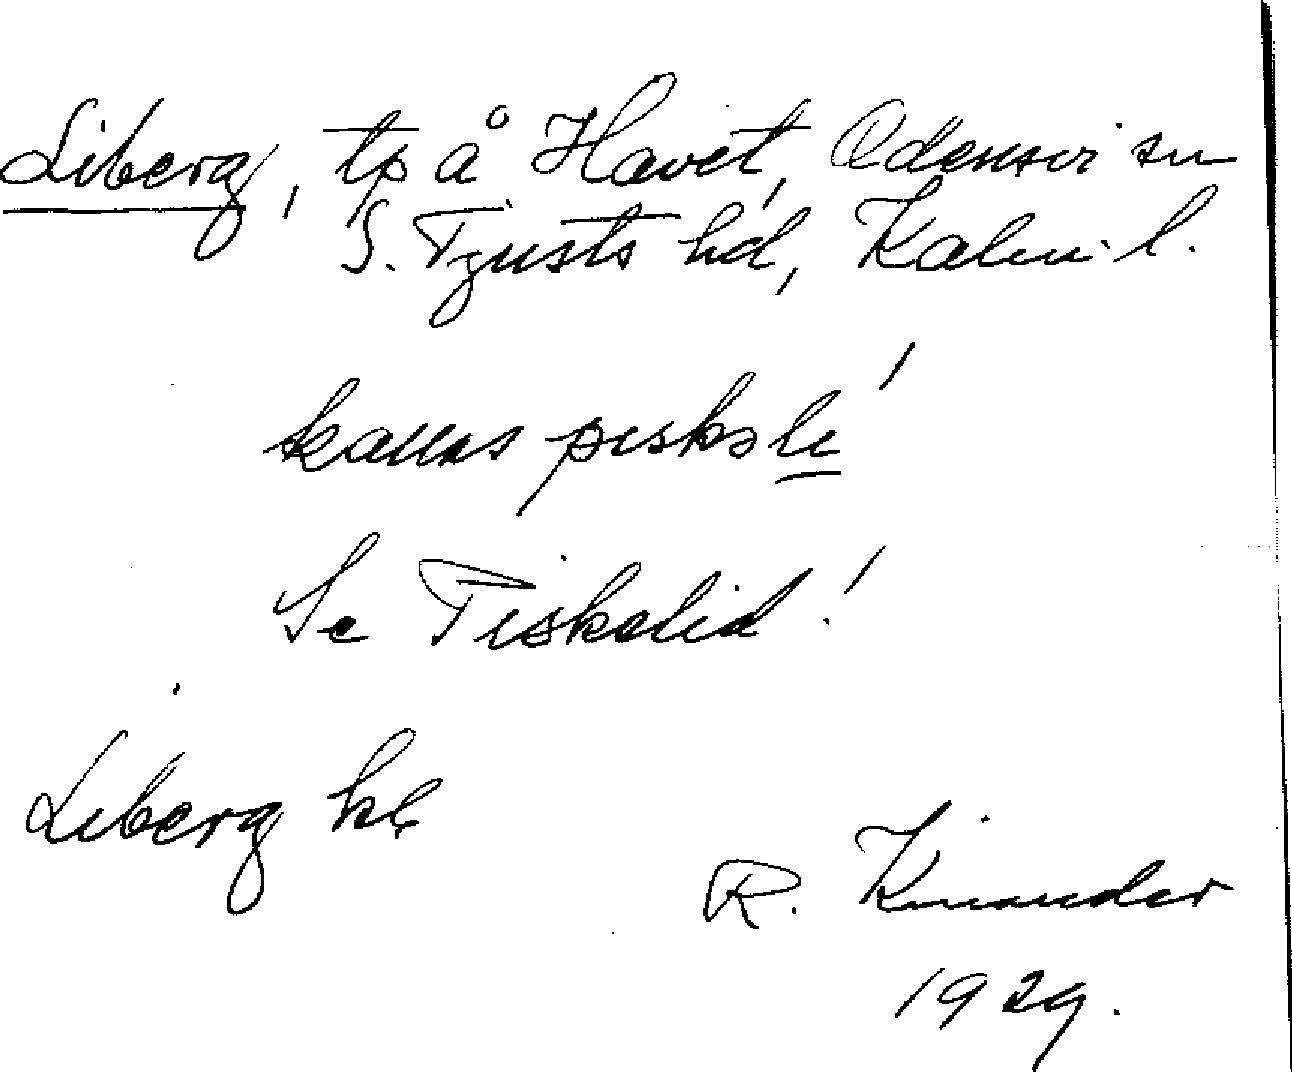 Liberg, tp å Havet, Odensvi sn
S. Tjusts hd, Kalm. l.
kallas piskəli
Se Fiskelid!
Liberg kl
R. Kinander
1929.